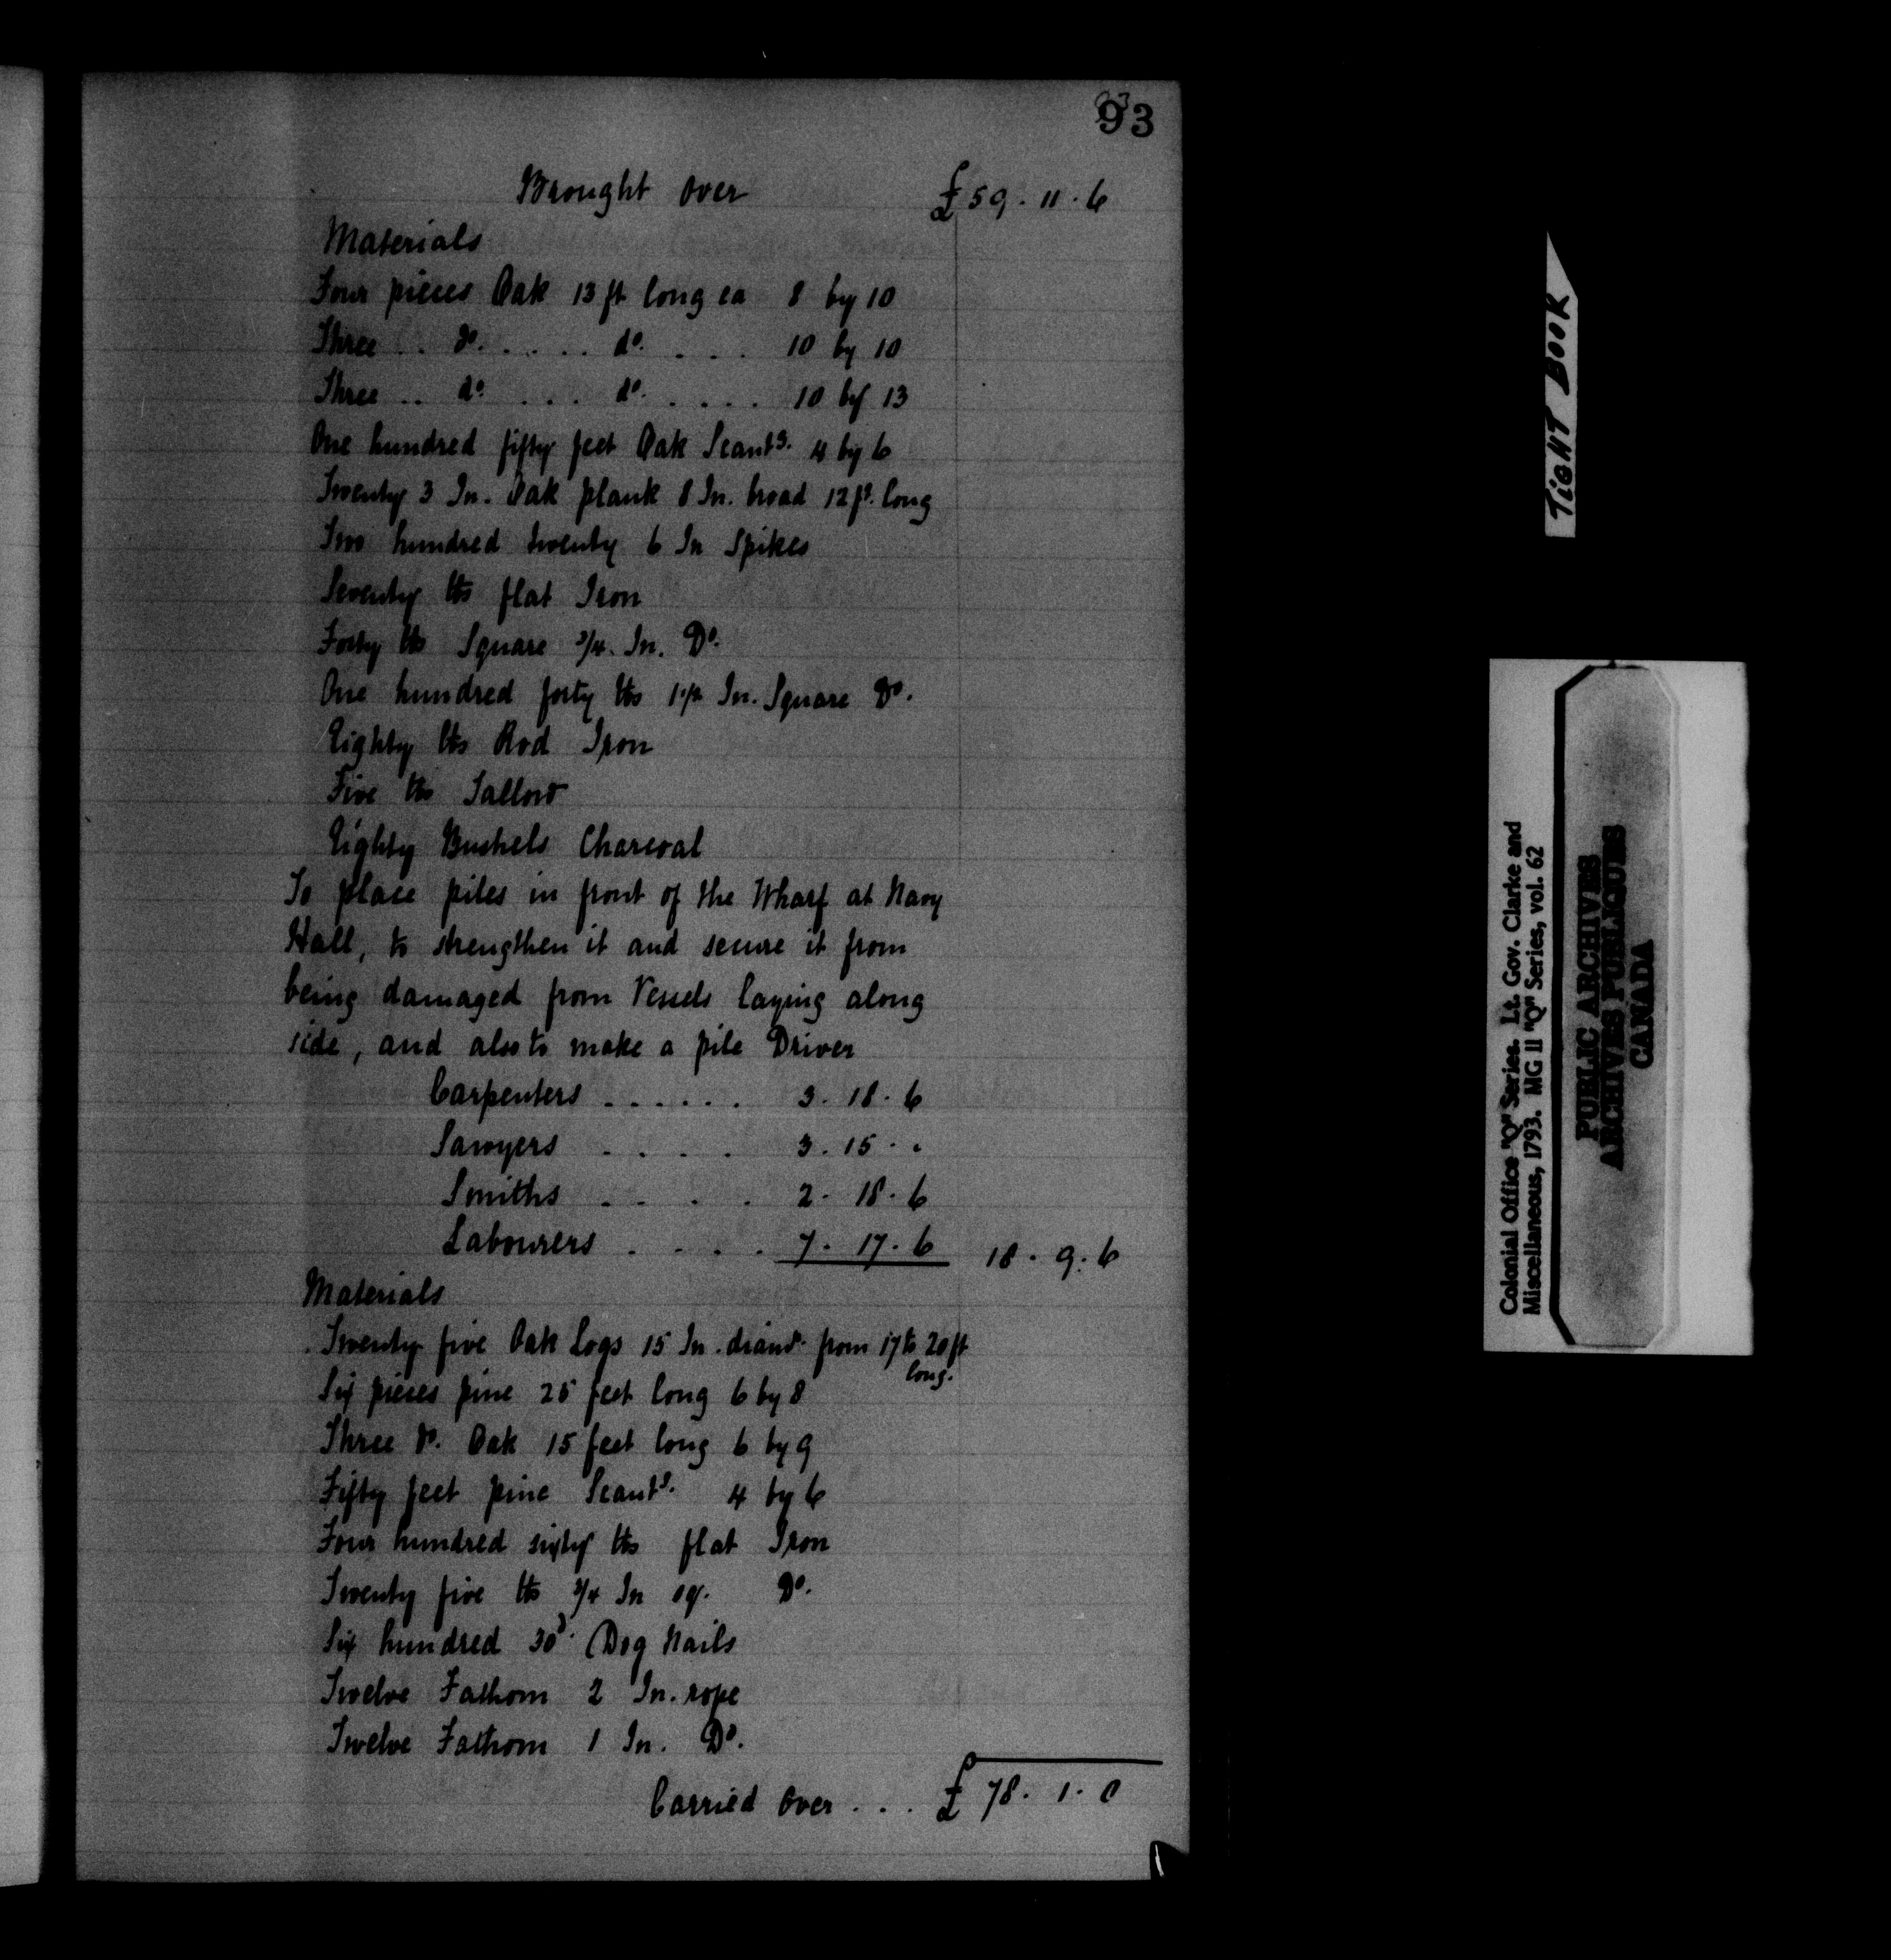 93
93
Brought over £59. 11. 6
Materials
Four pieces Oak 13 ft long ea 8 by 10
Three .. do. .... do. .... 10 by 10
Three .. do. ... do. .... 10 by 13
One hundred fifty feet Oak Scantg. 4 by 6
Twenty 3 In. Oak plank 8 In. broad 12 ft. long
Two hundred twenty 6 In Spikes
Seventy lbs flat Iron
Forty lbs Square 3/4 In. Do.
One hundred forty lbs 1 1/2 In. Square Do.
Eighty lbs Rod Iron
Five lbs Tallow
Eighty Bushels Charcoal
To place piles in front of the Wharf at Navy
Hall, to strengthen it and secure it from
being damaged from Vessels laying along
side, and also to make a pile Driver
Carpenters ...... 3. 18. 6
Sawyers .... 3. 15. "
Smiths .... 2. 18. 6
Labourers .... 7. 17. 6 18. 9. 6
Materials
Twenty five Oak Logs 15 In. diamr. from 17 to 20 ft
long.
Six pieces pine 25 feet long 6 by 8
Three do. Oak 15 feet long 6 by 9
Fifty feet pine Scantg. 4 by 6
Four hundred sixty lbs flat Iron
Twenty five lbs 3/4 In sq. Do.
Six hundred 30d. Dog Nails
Twelve Fathom 2 In. rope
Twelve Fathom 1 In. Do.
Carried over ... £ 78. 1. 0
TIGHT BOOK
Colonial Office "Q" Series. Lt. Gov. Clarke and
Miscellaneous, 1793. MG 11 "Q" Series, vol. 62
PUBLIC ARCHIVES
ARCHIVES PUBLIQUES
CANADA